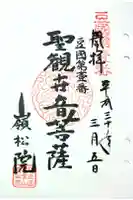 奉拝
平成三十年
三月五日
豆国第壹番
聖観世音菩薩
嶺松院